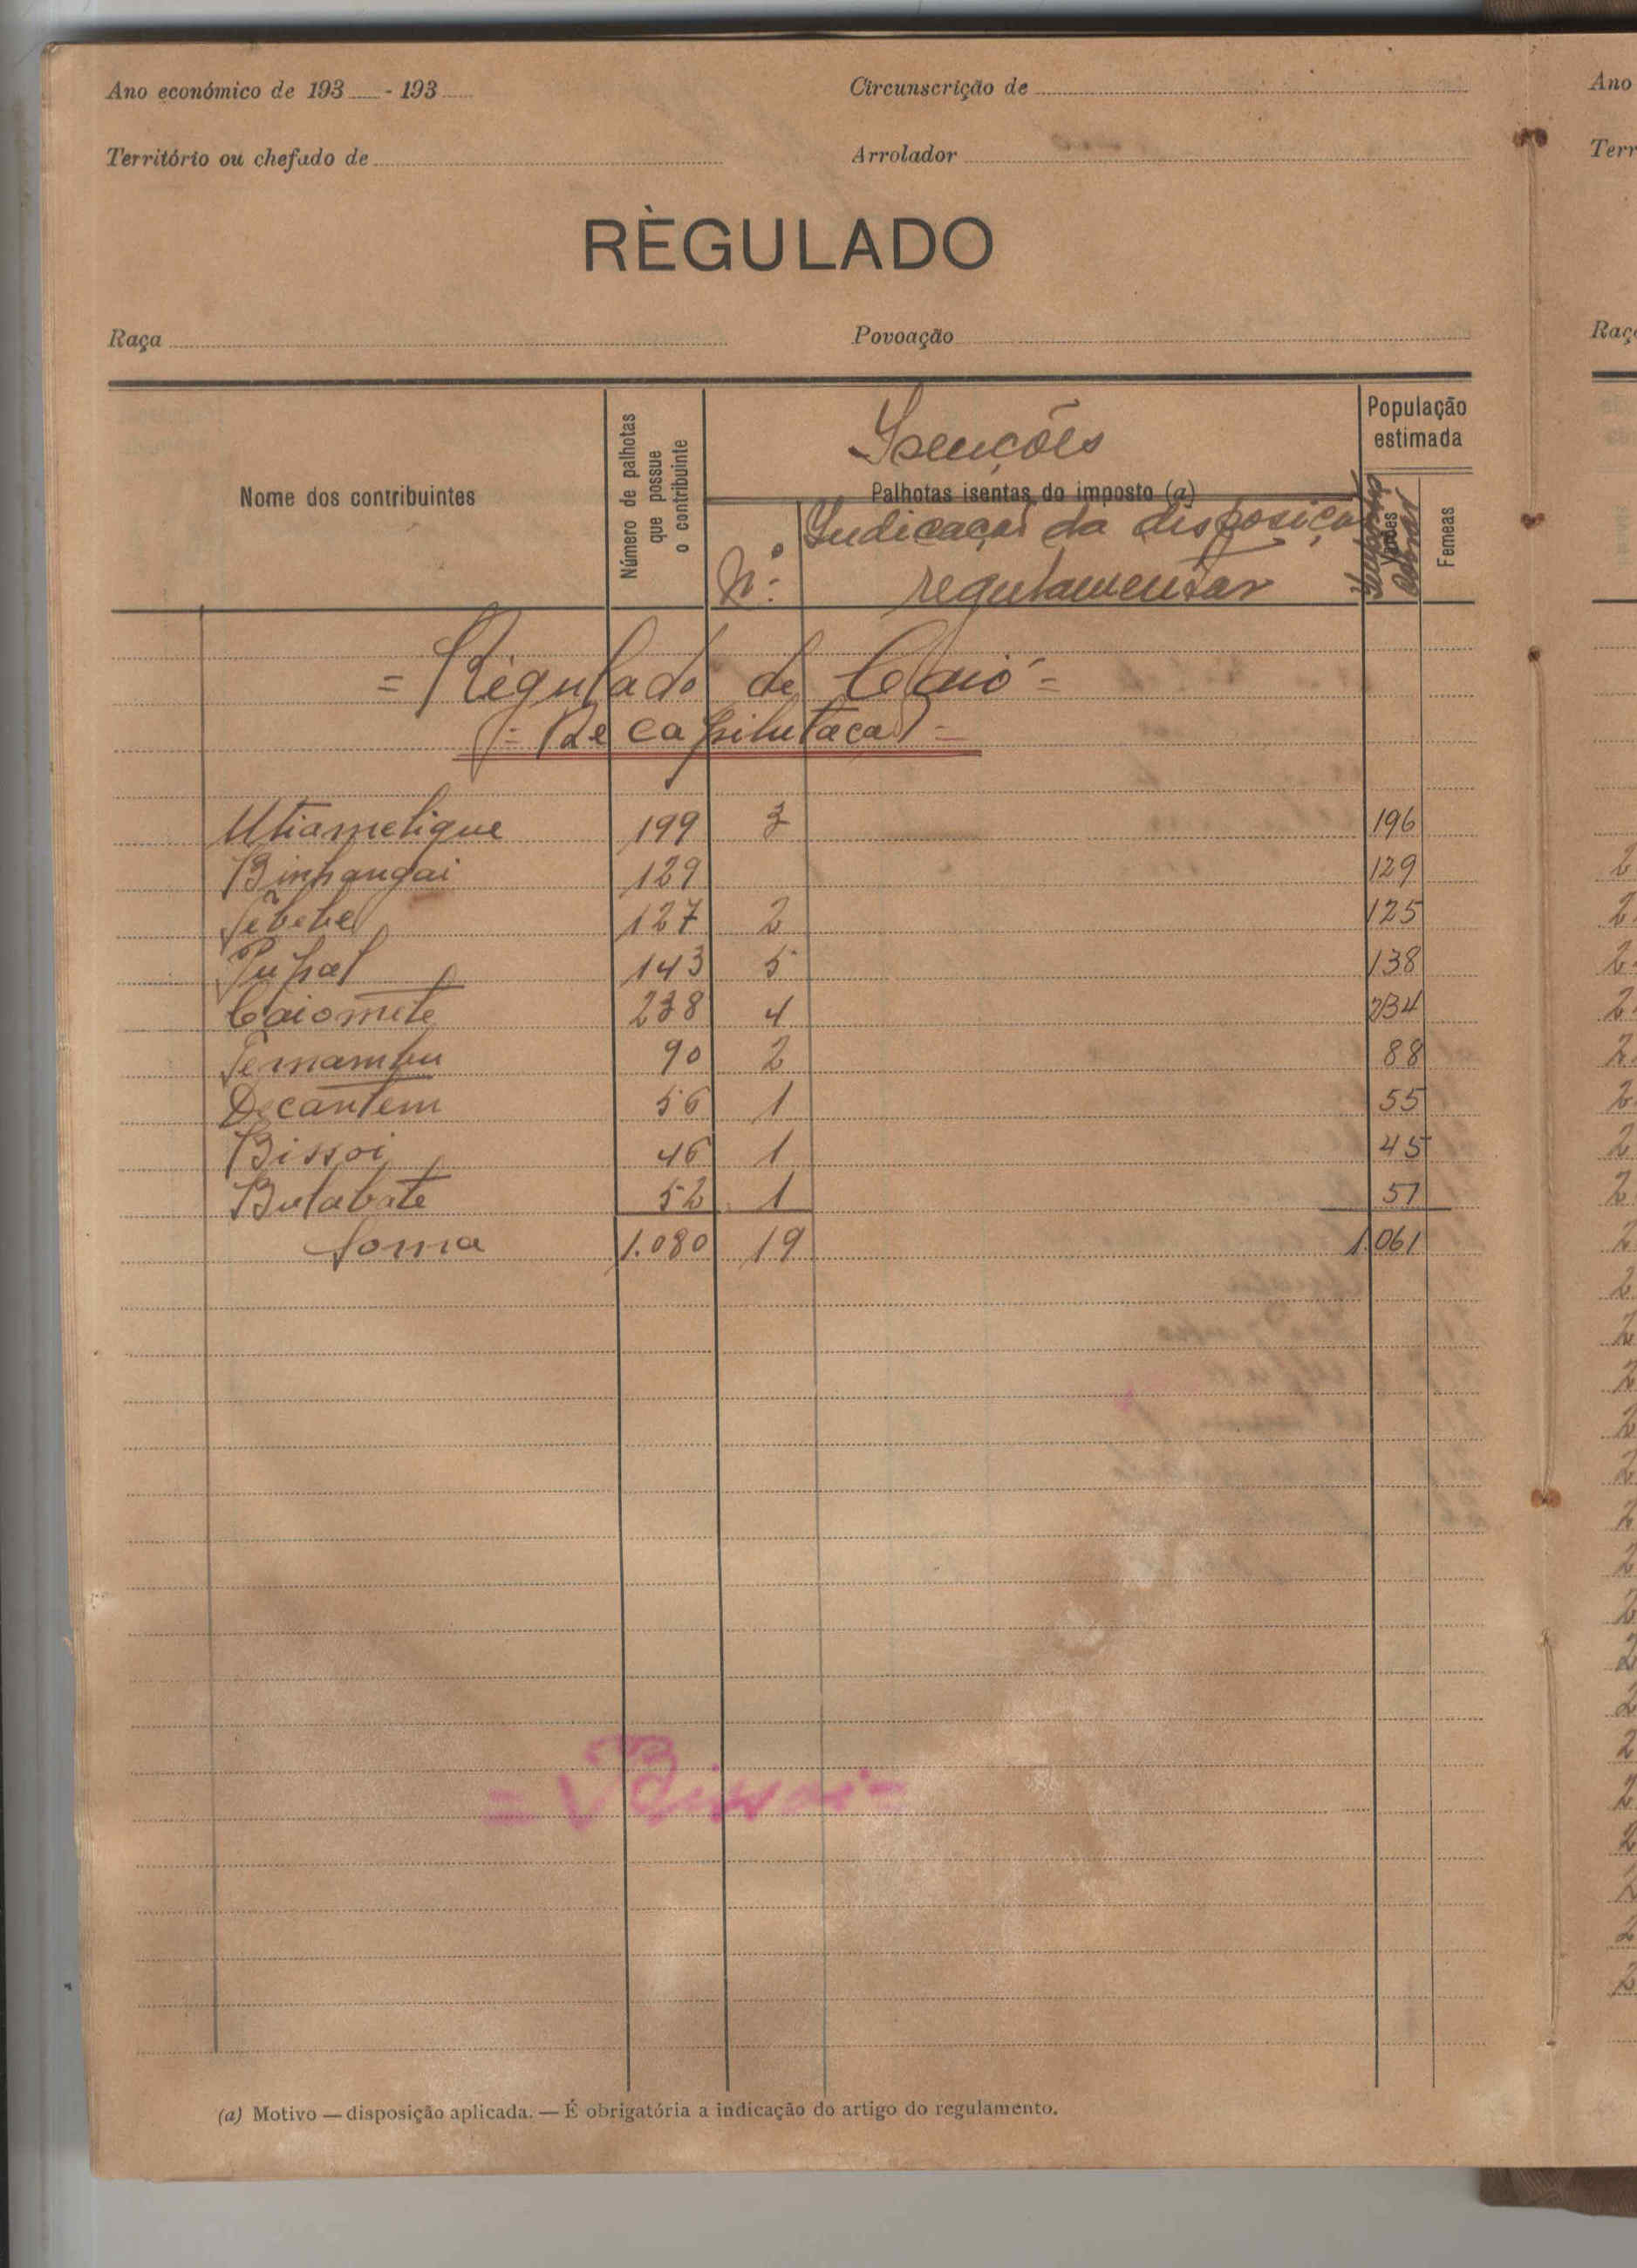 Ano económico de 193 - 193
Circunscrição de
Território ou chefado de
Arrolador
RÈGULADO
Raça
Povoação
Nome dos contribuintes
Número de palhotas que possue o contribuinte
Isenções
Palhotas isentas do imposto (a)
N.º
Indicação da disposição
regulamentar
População estimada
Femeas
= Régulado de Caió =
= Recapitulação =
Utiamelique 199 3 196
Binhangai 129 129
Têbebe 127 2 125
Pupal 143 5 138
Caiomete 238 4 234
Ternambu 90 2 88
Decantem 56 1 55
Bissoi 46 1 45
Bulabate 52 1 51
Soma 1.080 19 1.061
= Bissoi =
(a) Motivo — disposição aplicada. — É obrigatória a indicação do artigo do regulamento.
Ano
Terr
Raç